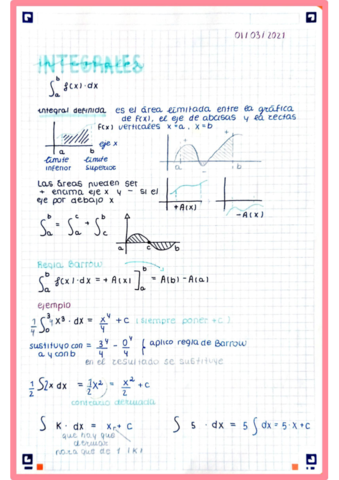 01/03/2021
INTEGRALES
∫ₐᵇ f(x)·dx
integral definida es el área limitada entre la gráfica
de f(x), el eje de abcisas y la rectas
f(x) verticales x=a, x=b
+ + -
eje x
a b a b
límite límite
inferior superior
Las áreas pueden ser
+ encima eje x y - si el
eje por debajo x
+A(x) -A(x)
∫ₐᵇ = ∫ₐᶜ + ∫꜀ᵇ
a c b
Regla Barrow
∫ₐᵇ f(x)·dx = +A(x)]ₐᵇ = A(b) - A(a)
ejemplo
1/4 ∫₀³ 4x³·dx = x⁴/4 + c (siempre poner +c)
sustituyo con = 3⁴/4 - 0⁴/4 { aplico regla de Barrow
a y con b
en el resultado se sustituye
1/2 ∫2x dx = 1/2x² = x²/2 + c
contenido derivada
∫ K·dx = x + c ∫ 5·dx = 5∫dx = 5·x+c
que hay que
derivar
para que de 1 (K)